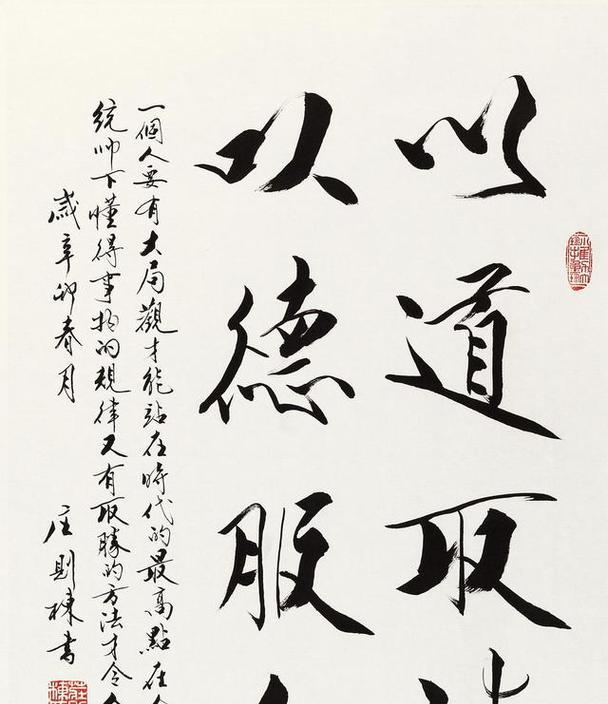 以道取
以德服
一個人要有大局觀才能站在時代的最高點在
統帅下懂得事物的規律又有取勝的方法才令
歲辛卯春月
庄則棟書